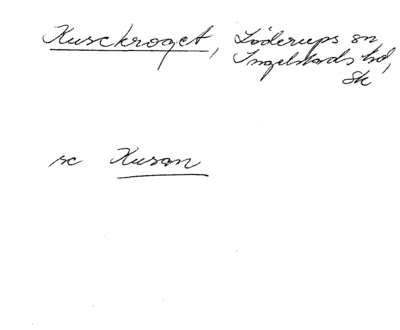 Kusekroget, Löderups sn
Ingelstads hd,
Sk
se Kusan